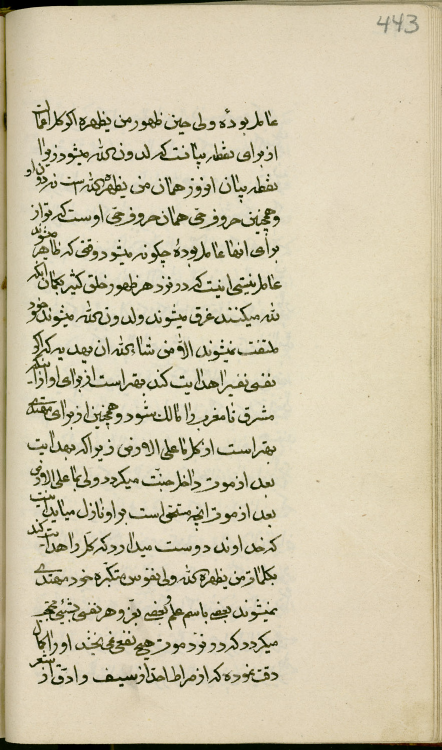 443
عامل بوده ولی حین ظهور من یظهره الله اگر کل اعمالت
از برای نقطه بیان است که لدون الله میشود زیرا
نقطه بیان انروز همان من یظهره الله است نه دون او
و همچنین حروف حی همان حروف حی اوست که تو از
برای انها عامل بوده چگونه میشود وقتی که ظاهر میشوند
عامل نیستی اینست که در نزد هر ظهور خلق کثیر بگمان اینکه
لله میکنند غرق میشوند ولدون الله میشوند و خود
ملتفت نمیشوند الا من شاء الله ان یهدیه که اگر
نفسی نفسی را هدایت کند بهتر است از برای او از اینکه
مشرق تا مغرب را مالک شود و همچنین از برای مهتدی
بهتر است از کل ما علی الارض زیرا که بهدایت
بعد از موت داخل جنت میگردد ولی بما علی الارض
بعد از موت انچه مستحق است بر او نازل میاید اینست
که خداوند دوست میدارد که کل را هدایت کند
بکلمات من یظهره الله ولی نفوس متکبره خود مهتدی
نمیشوند بعضی باسم علم بعضی بعز و هر نفسی بشیء محتجب
میگردد که در نزد موت هیچ نفعی نمی بخشد او را کمال
دقت نموده که از صراط احد از سیف و ادق از شعر